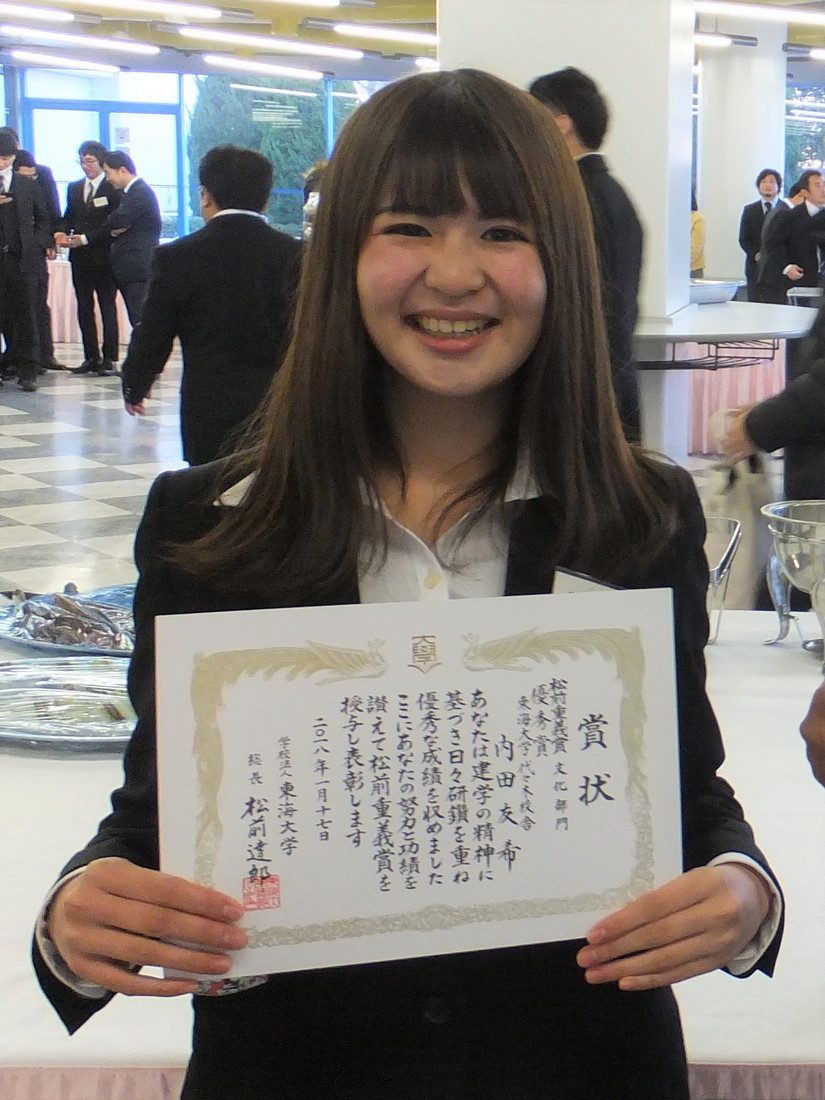 大學
賞状
松前重義賞 文化部門
優秀賞
東海大学代々木校舎
内田友希
あなたは建学の精神に
基づき日々研鑽を重ね
優秀な成績を収めました
ここにあなたの努力と功績を
讃えて松前重義賞を
授与し表彰します
二〇一八年一月十七日
学校法人 東海大学
総長 松前達郎